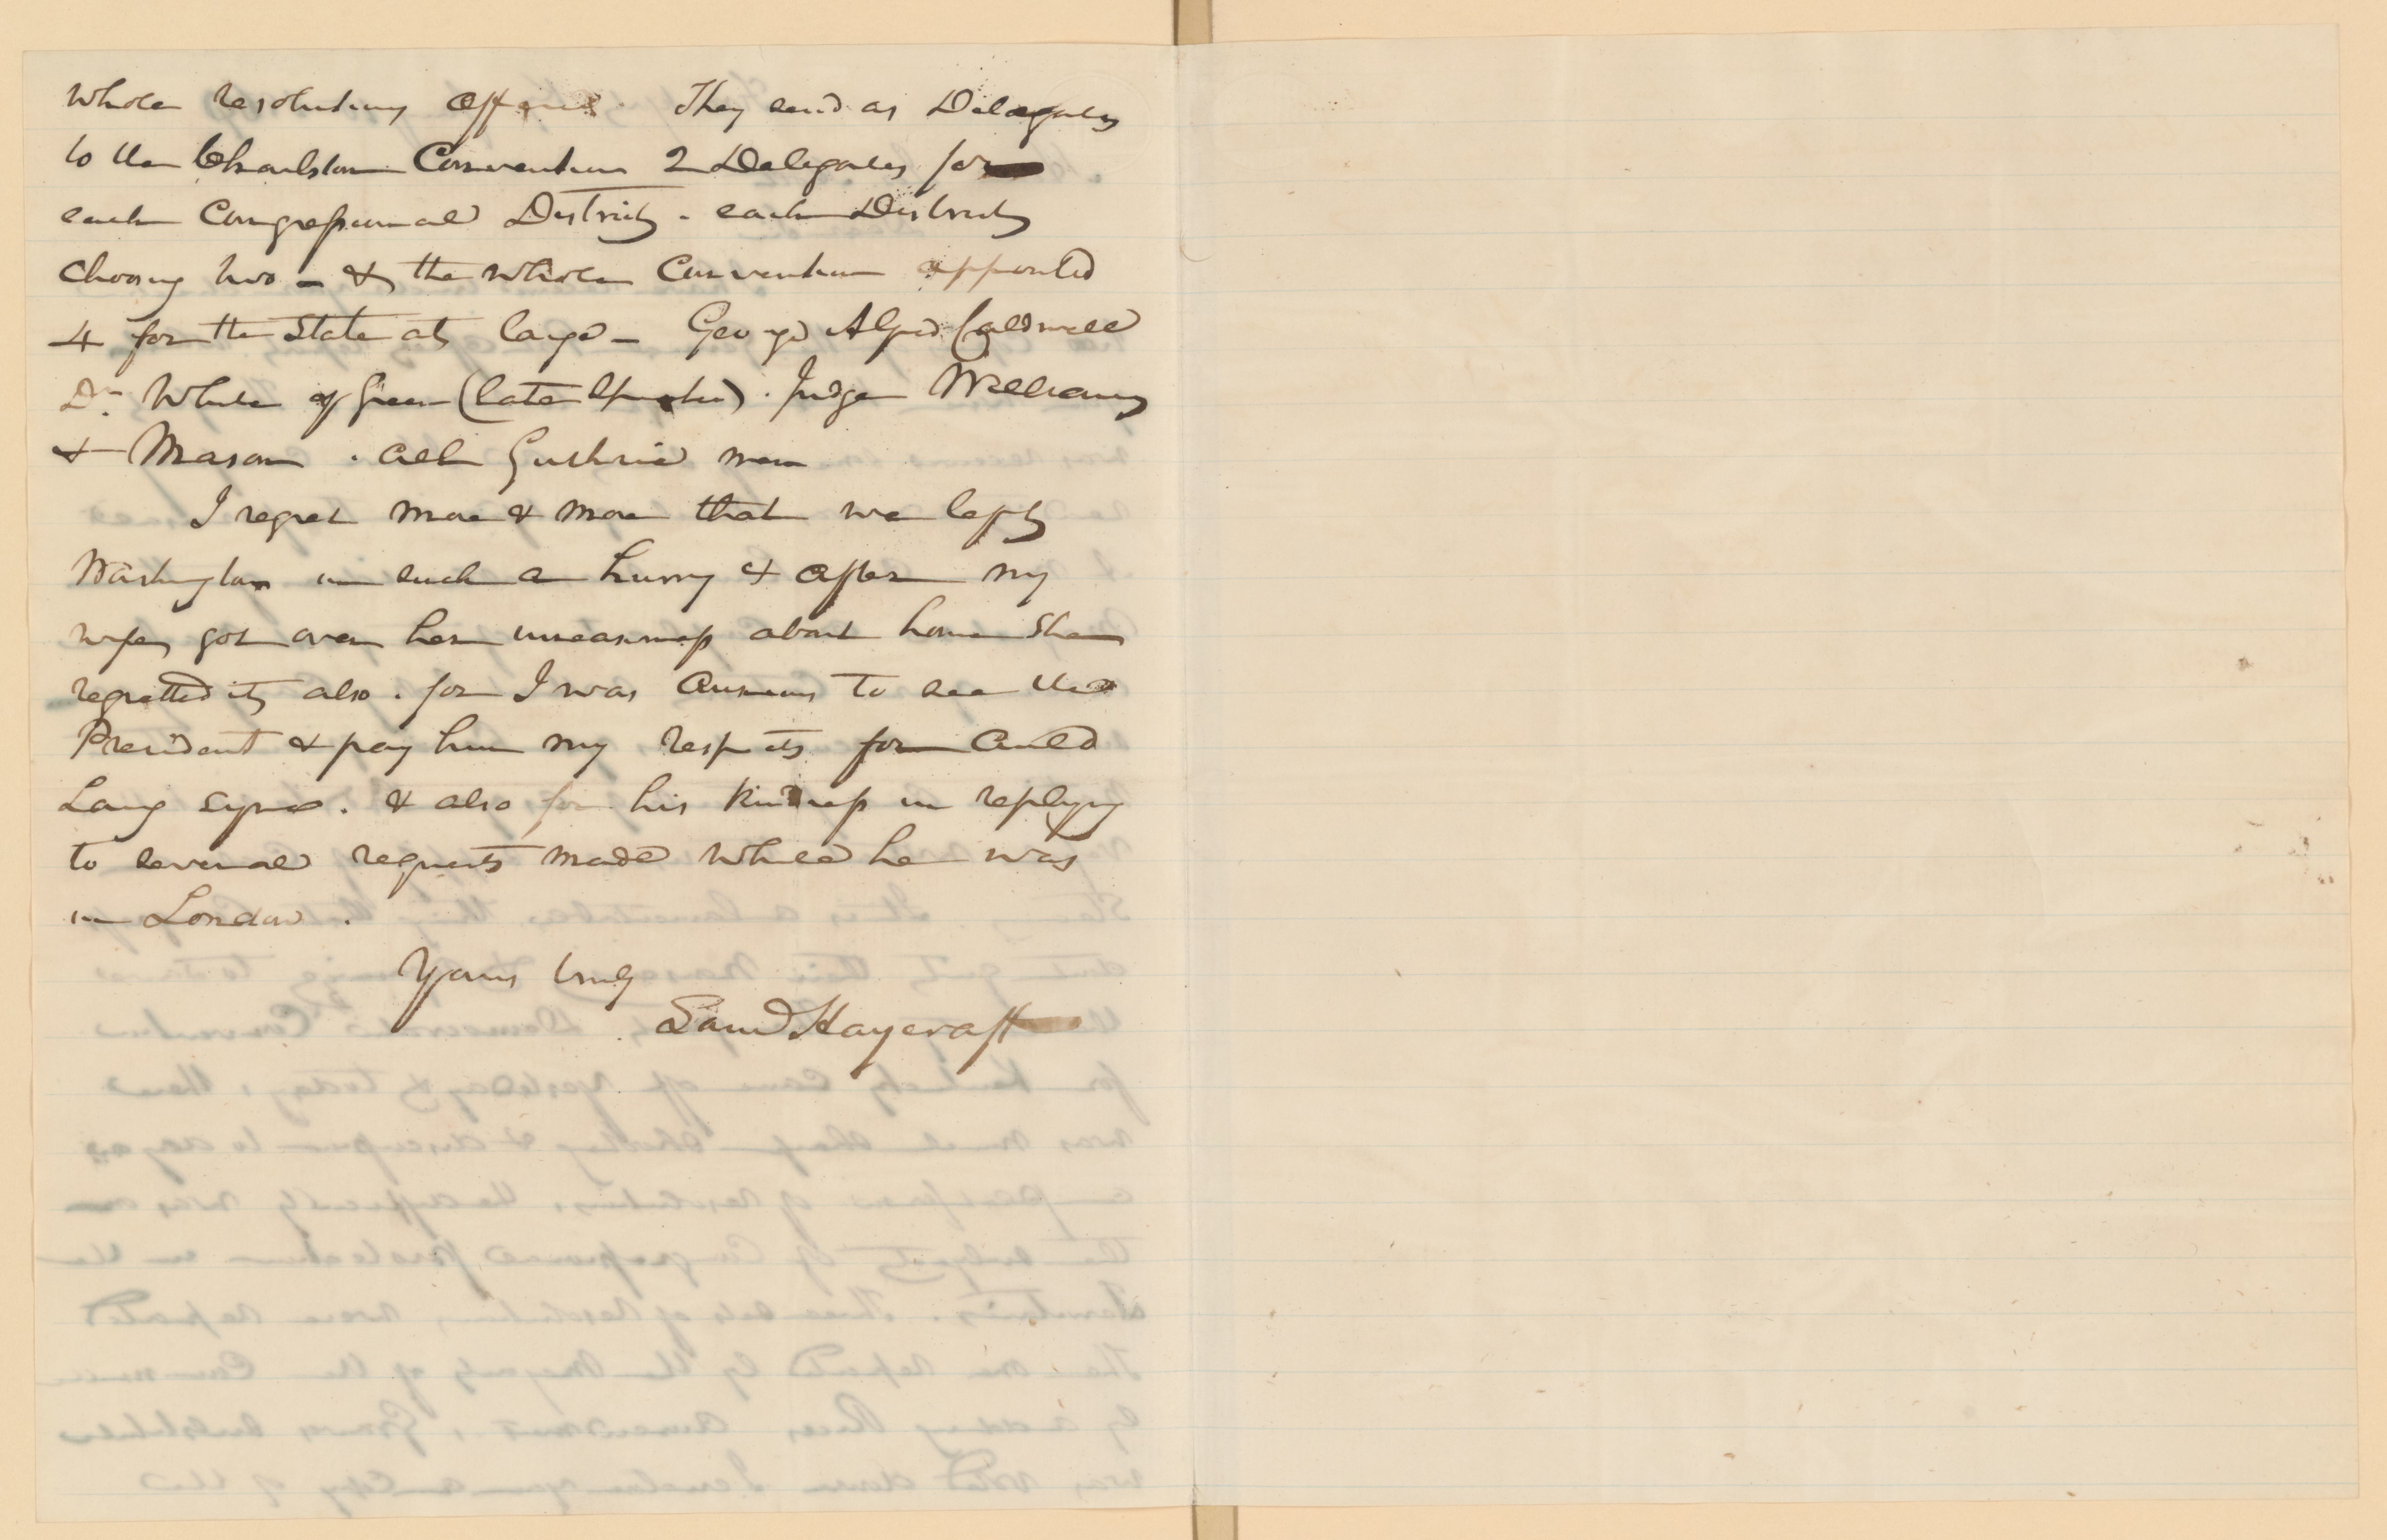 whole resolutions offered. They send as Delegates
to the Charlston Convention 2 Delegates for
each Congressional District - each District
choosing two - & the whole Convention appointed
4 for the State at large - George Alfred Caldwell
Dr. White of Green (late Speaker). Judge Williams
& Mason. all Guthrie men
I regret more & more that we left
Washington in such a hurry & after my
wife got over her uneasiness about home she
regretted it also. for I was anxious to see the
President & pay him my respects for Auld
Lang Syne. & also for his kindness in replying
to several requests made while he was
in London.
Yours truly
Saml Haycraft